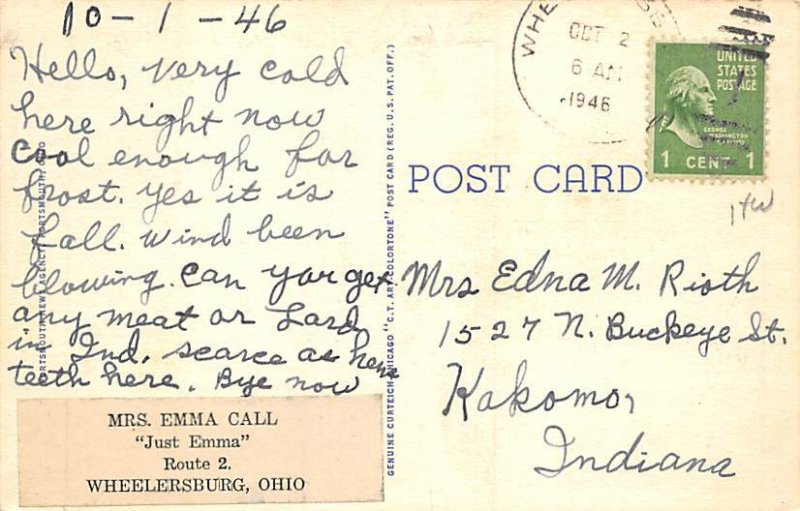 10-1-46
Hello, very cold
here right now
Cool enough for
frost. Yes it is
fall. Wind been
blowing. Can you get
any meat or Lard
in Ind. scarce as hens
teeth here. Bye now
MRS. EMMA CALL
"Just Emma"
Route 2.
WHEELERSBURG, OHIO
GENUINE CURTEICH-CHICAGO "C.T. ART-COLORTONE" POST CARD (REG. U.S. PAT. OFF.)
OCT 2
6 AM
1946
UNITED
STATES
POSTAGE
GEORGE
WASHINGTON
1 CENT 1
POST CARD
Mrs Edna M. Rioth
1527 N. Buckeye St.
Kokomo,
Indiana